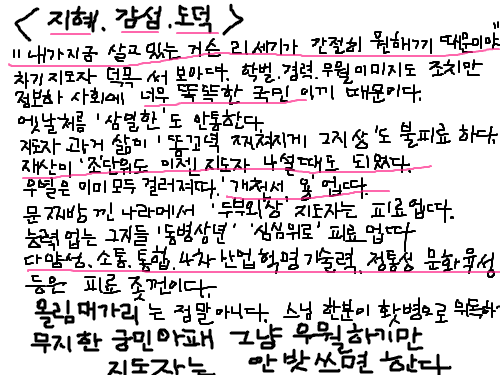 <지혜. 감섭. 도덕>
"내가 지금 살고 있는 거슨 리 세기가 간절히 원해끼 때문이야
차기 지도자 덕목 써 보아다. 학벌. 경력. 무월 이미지도 조치만
정보하 사회에 너무 똑똑한 국민 이끼 때문이다.
옛날처름 '삼열한'도 안통한다.
지도자 과거 삶이 '똥꼬력 찌져지게 그지상'도 불피료 하다.
재산이 '조단위도 미친 지도자 나설 때도 되었다.
우벨은 이미 모두 걸러져따. '개천서 용' 업따.
문지방 낀 나라에서 '두부외상' 지도자는 피료업다.
능력 업는 그지들 '동병상년' '심심위로' 피료 업따
다양성. 소통. 통합. 4차 산업혁명 기술력. 정통성 문화육성
등은 피료 조꺼이다.
올림머가리는 정말 아니다. 스님 한분이 횃병으로 위독하
무지한 궁민 아패 그냥 우뭘하기만
지도자는 안밧쓰면 한다